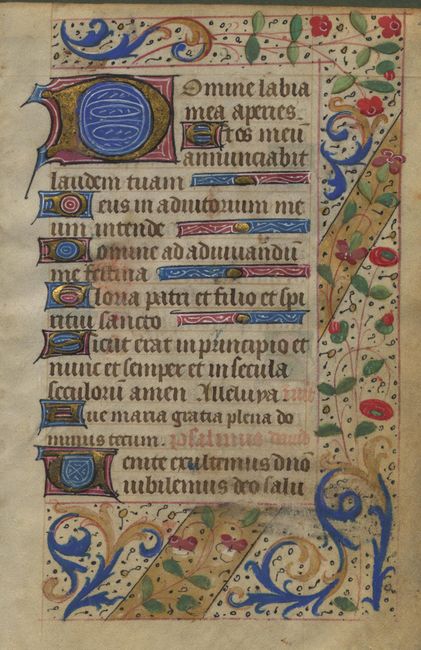 Domine labia
mea aperies.
Et os meū
annunciabit
laudem tuam
Deus in adiutorium me
um intende
Domine ad adiuuandū
me festina
Gloria patri et filio et spi
ritui sancto
Sicut erat in principio et
nunc et semper et in secula
seculorū amen Alleluya
Aue maria gratia plena do
minus tecum. psalmus dauid
Uenite exultemus dn̄o
iubilemus deo salu